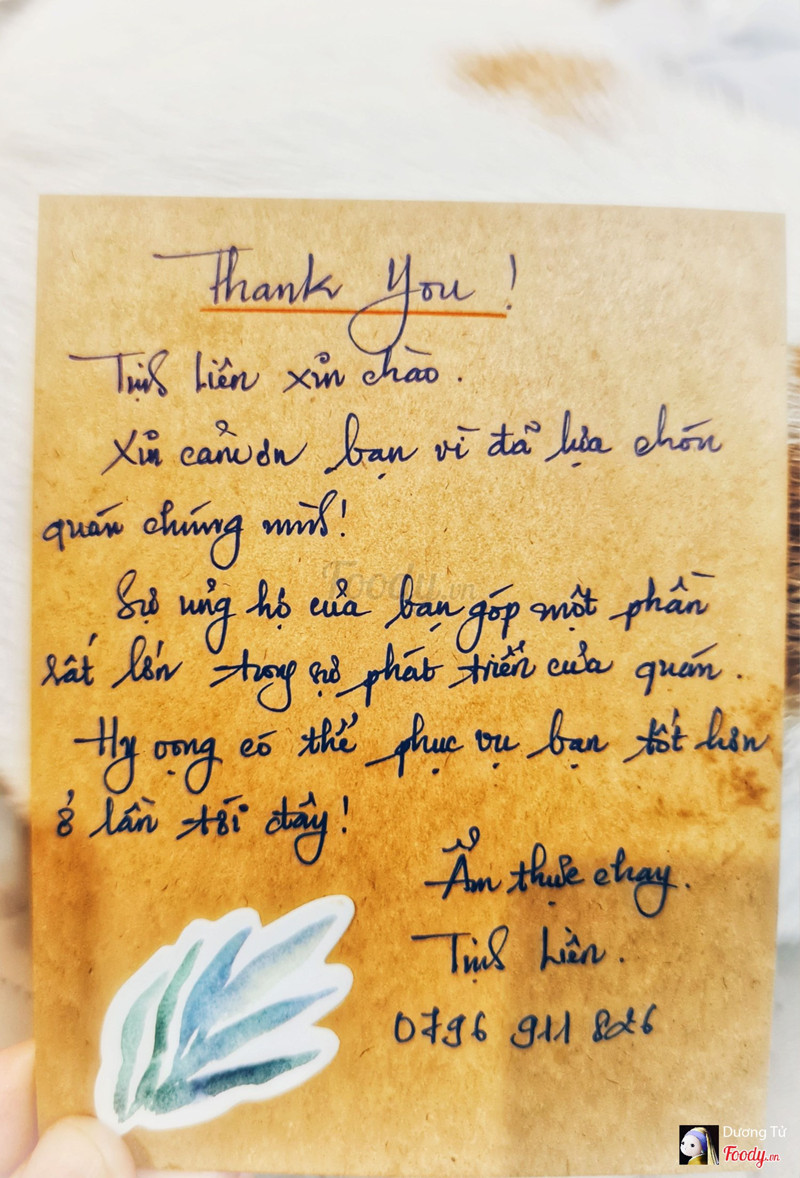 Thank You !
Tịnh Liên xin chào.
Xin cảm ơn bạn vì đã lựa chọn
quán chúng mình!
Foody.vn
Sự ủng hộ của bạn góp một phần
rất lớn trong sự phát triển của quán.
Hy vọng có thể phục vụ bạn tốt hơn
ở lần tới đây!
Ẩm thực chay.
Tịnh Liên.
0796 911 826
Dương Tử
Foody.vn